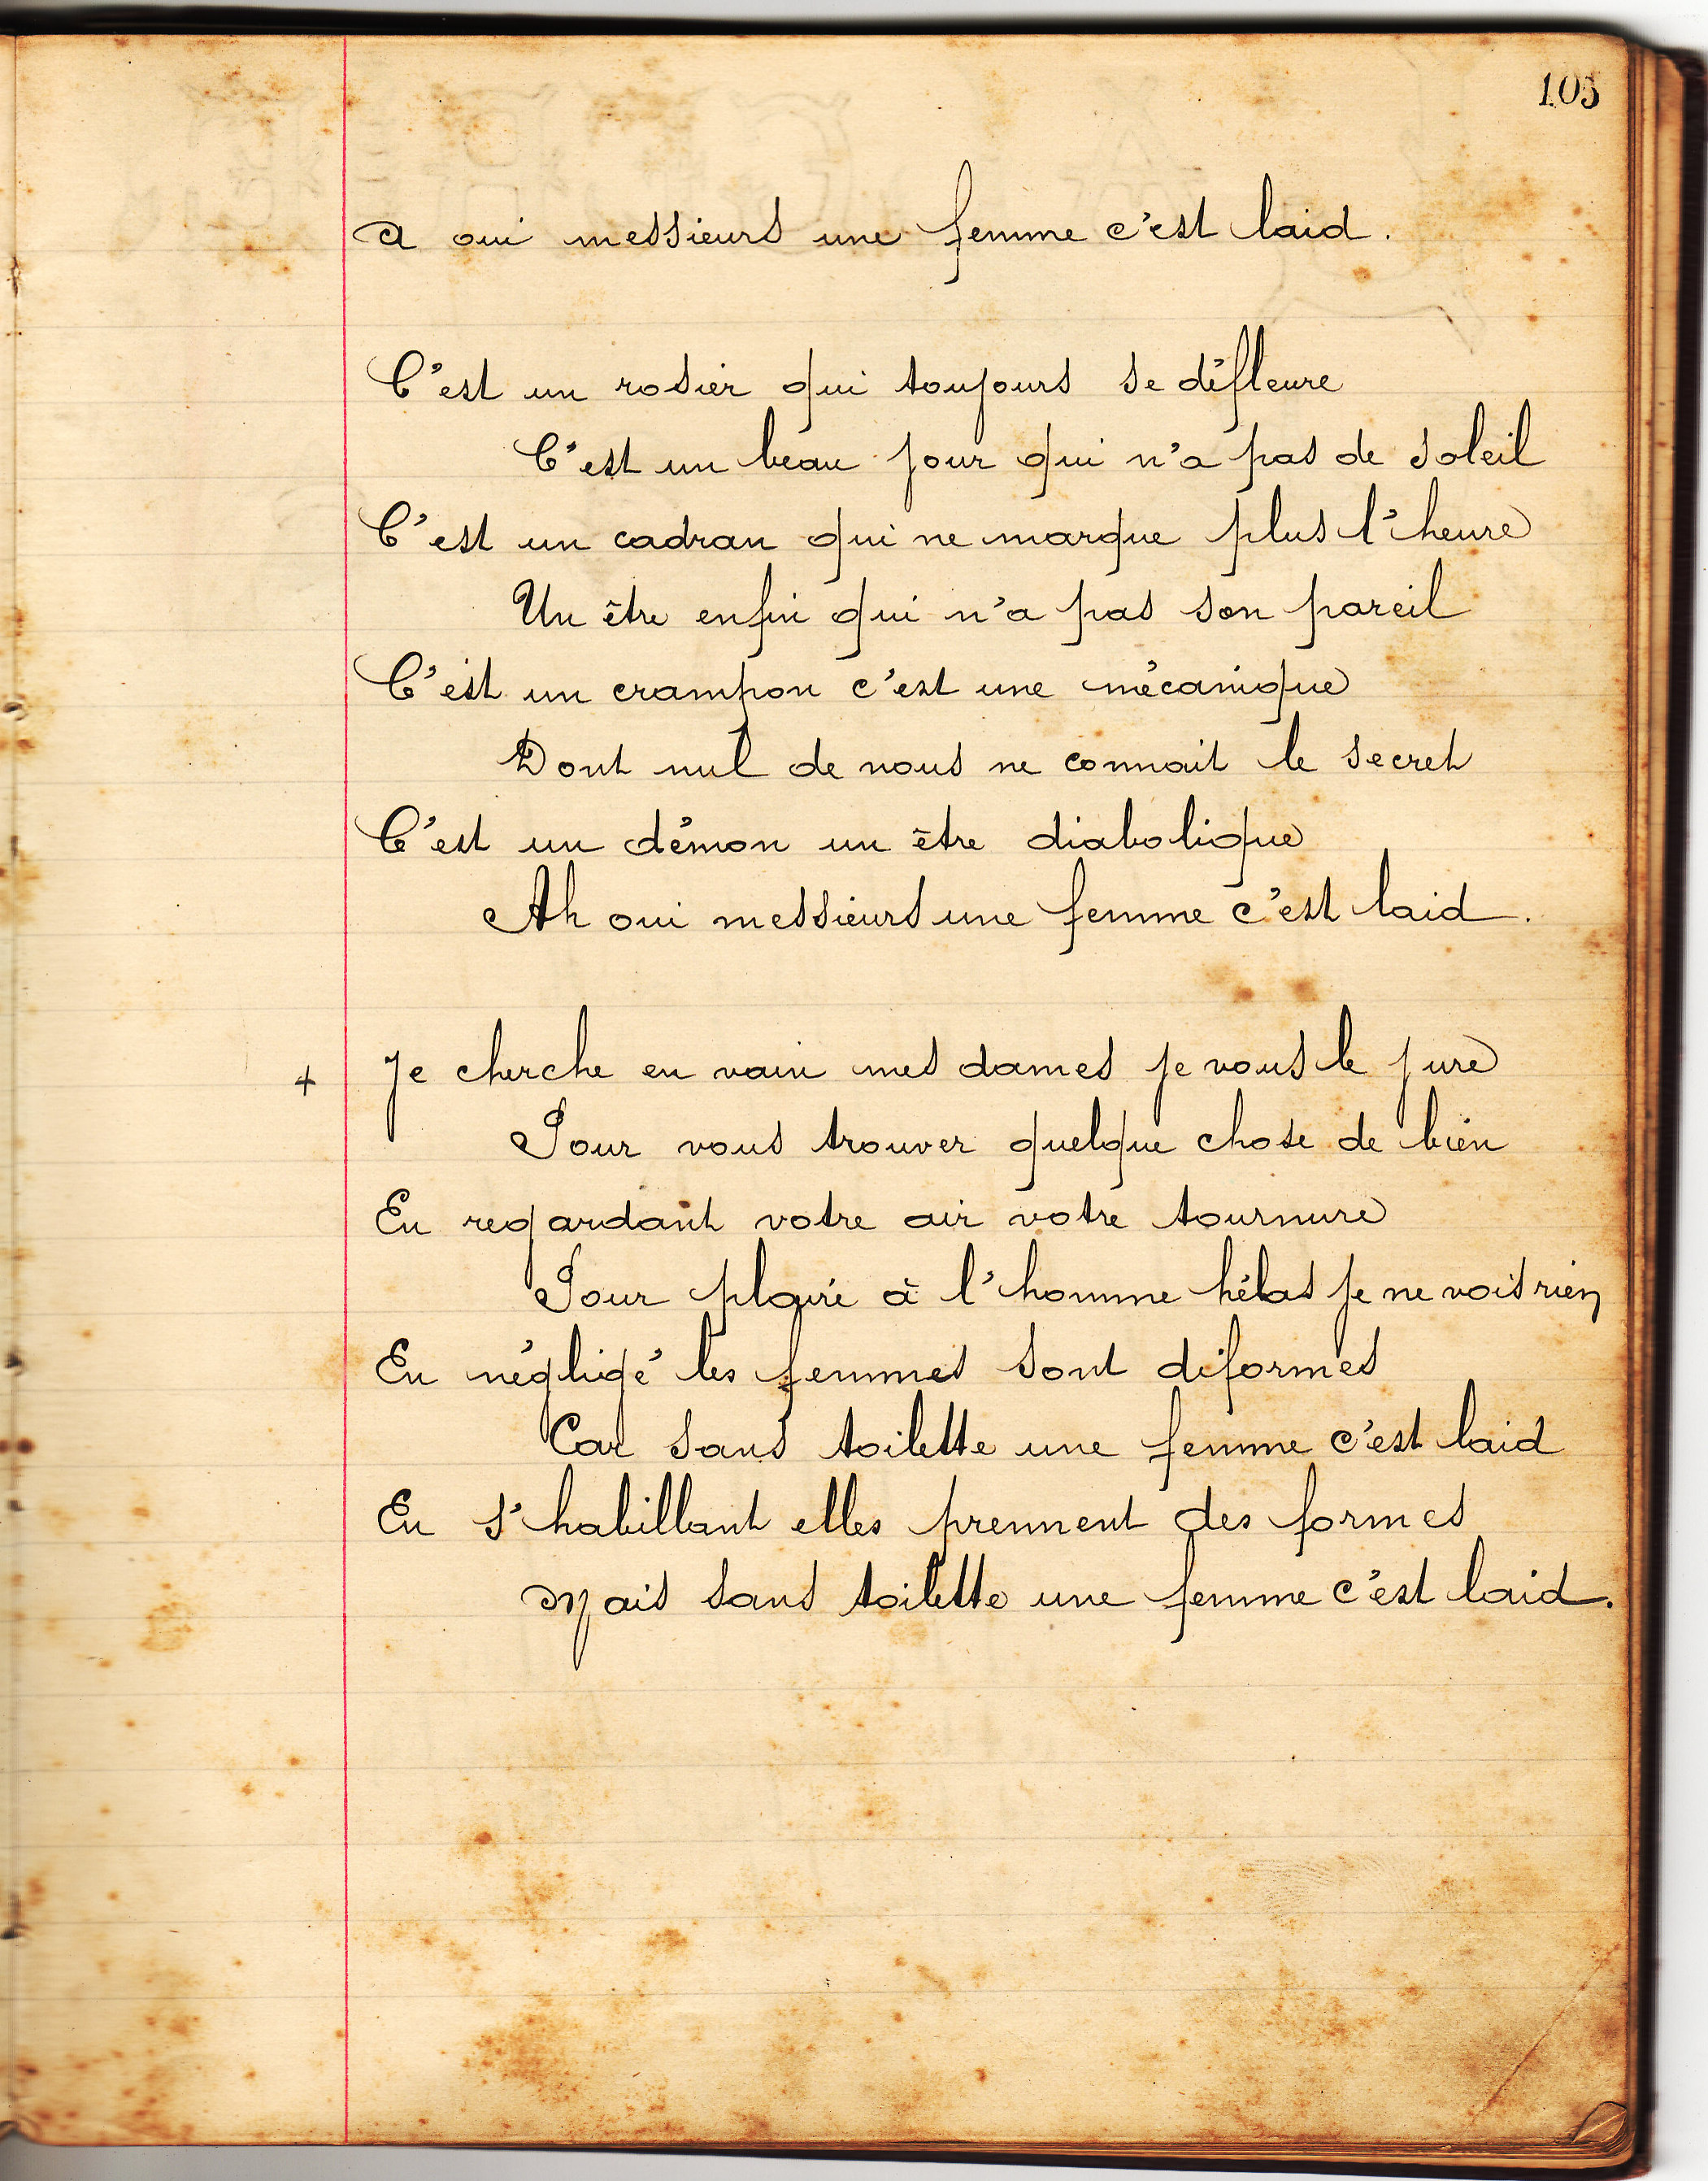 105
a oui messieurs une femme c'est laid.
C'est un rosier qui toujours se défleure
C'est un beau jour qui n'a pas de soleil
C'est un cadran qui ne marque plus l'heure
Un être enfin qui n'a pas son pareil
C'est un crampon c'est une mécanique
Dont nul de nous ne connait le secret
C'est un démon un être diabolique
Ah oui messieurs une femme c'est laid.
+ Je cherche en vain mes dames je vous le jure
Pour vous trouver quelque chose de bien
En regardant votre air votre tournure
Pour plaire à l'homme hélas je ne vois rien
En négligé les femmes sont diformes
Car sans toilette une femme c'est laid
En s'habillant elles prennent des formes
Mais sans toilette une femme c'est laid.